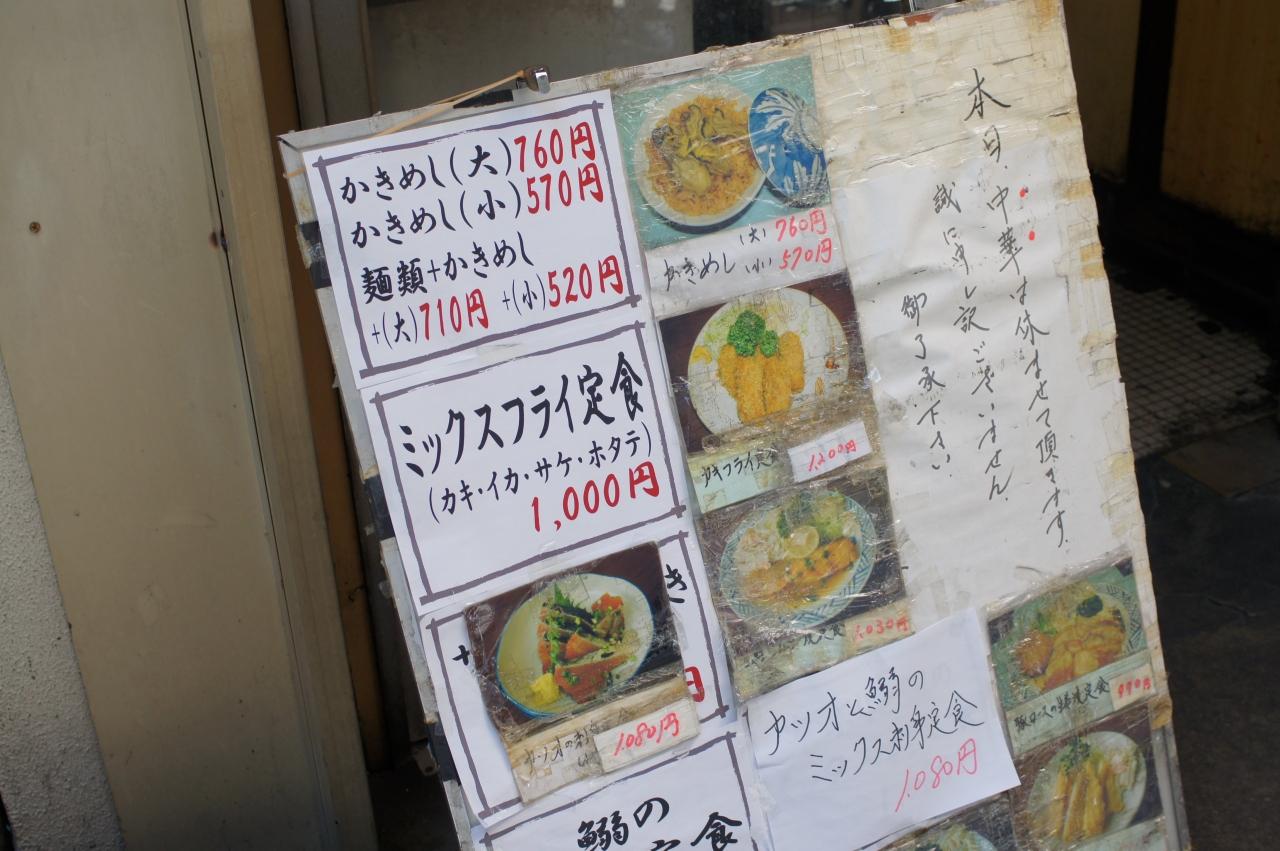 かきめし(大)760円
かきめし(小)570円
麺類+かきめし
+(大)710円 +(小)520円
ミックスフライ定食
(カキ・イカ・サケ・ホタテ)
1,000円
き
+
円
カツオの刺
1.080円
鰯の
定食
(大)760円
かきめし(小)570円
カキフライ定食
1,200円
焼定食 1.030円
カツオと鰯の
ミックス刺身定食
1.080円
本日、中華は休ませて頂きます。
誠に申し訳ございません。
御了承下さい
豚ロースの生姜焼定食
990円